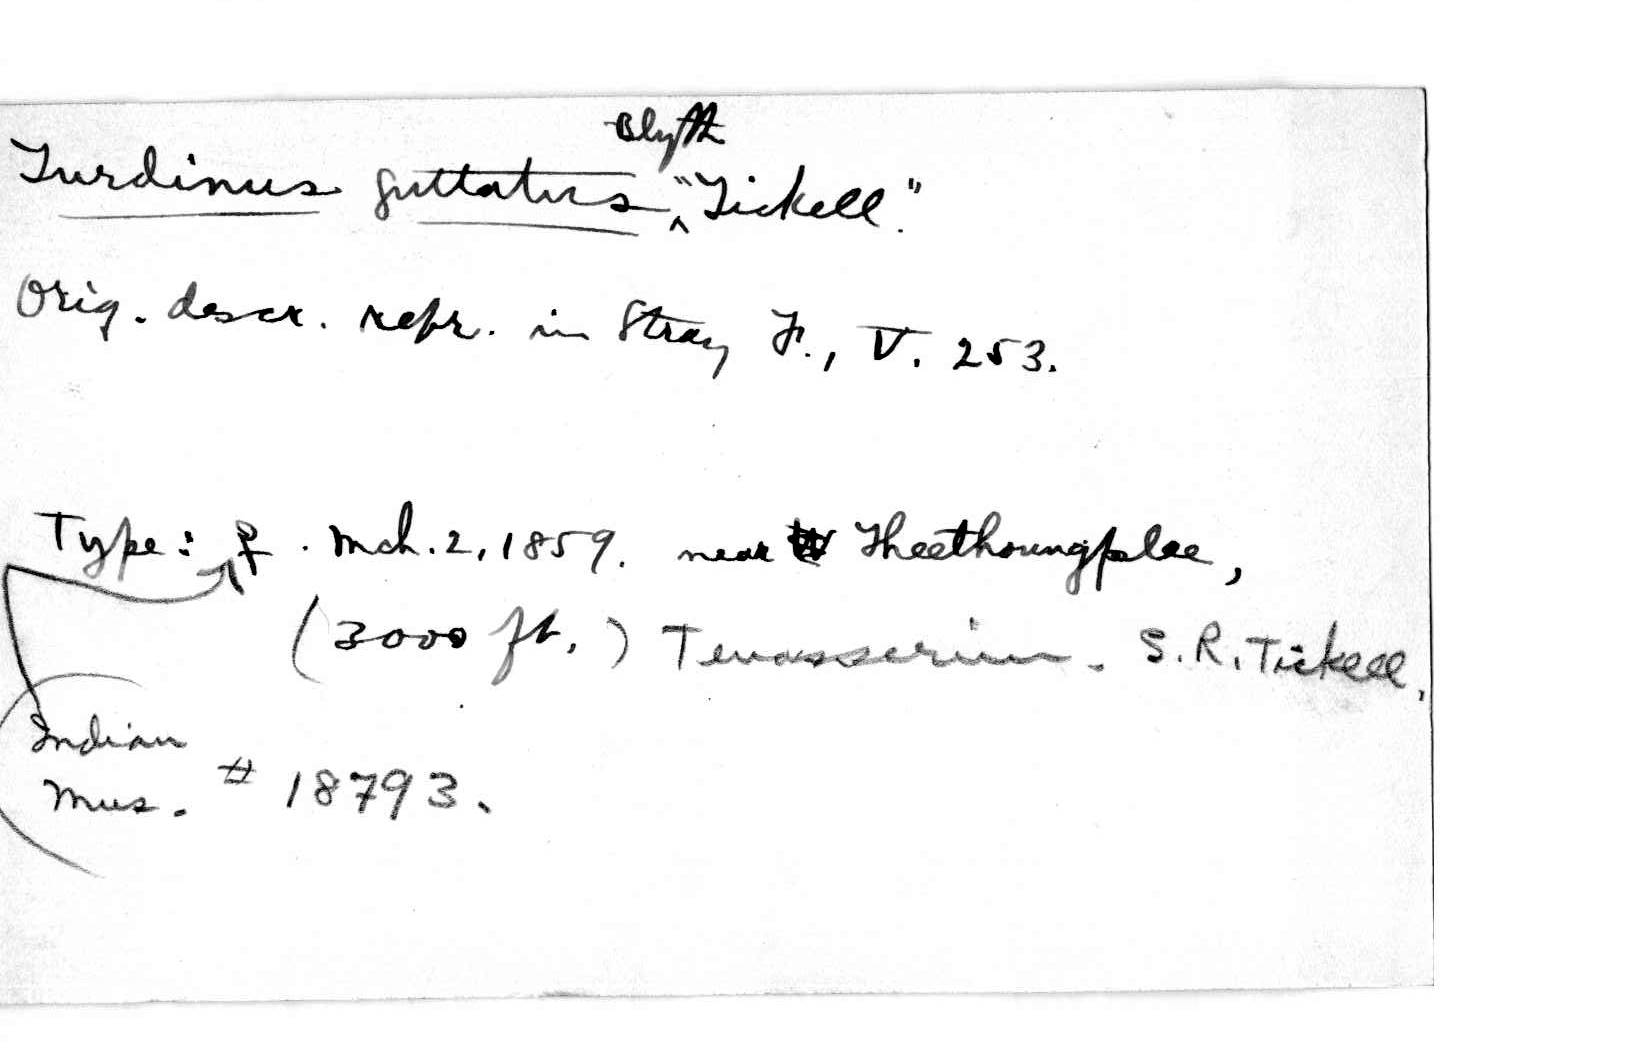 Turdinus guttatus Blyth "Tickell."
Orig. descr. repr. in Stray F., V. 253.
Type: ♀. Mch. 2, 1859. near Theethoungplee,
(3000 ft.) Tenasserim. S. R. Tickell,
Indian
Mus. # 18793.